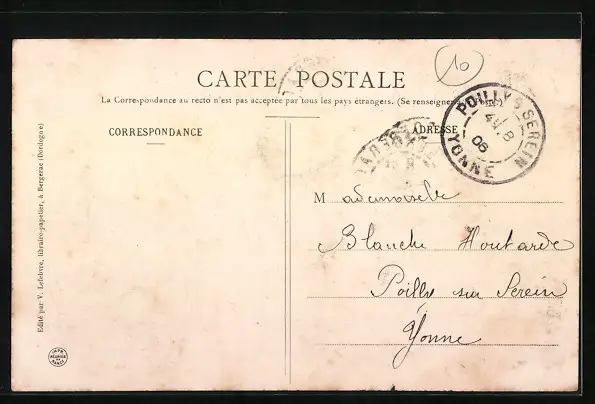 10
CARTE POSTALE
La Correspondance au recto n'est pas acceptée par tous les pays étrangers. (Se renseigner
CORRESPONDANCE
ADRESSE
POILLY S SEREIN
8
06
YONNE
Mademoiselle
Blanche Houtarde
Poilly sur Serein
Yonne
Edité par V. Lefebvre, libraire-papetier, à Bergerac (Dordogne)